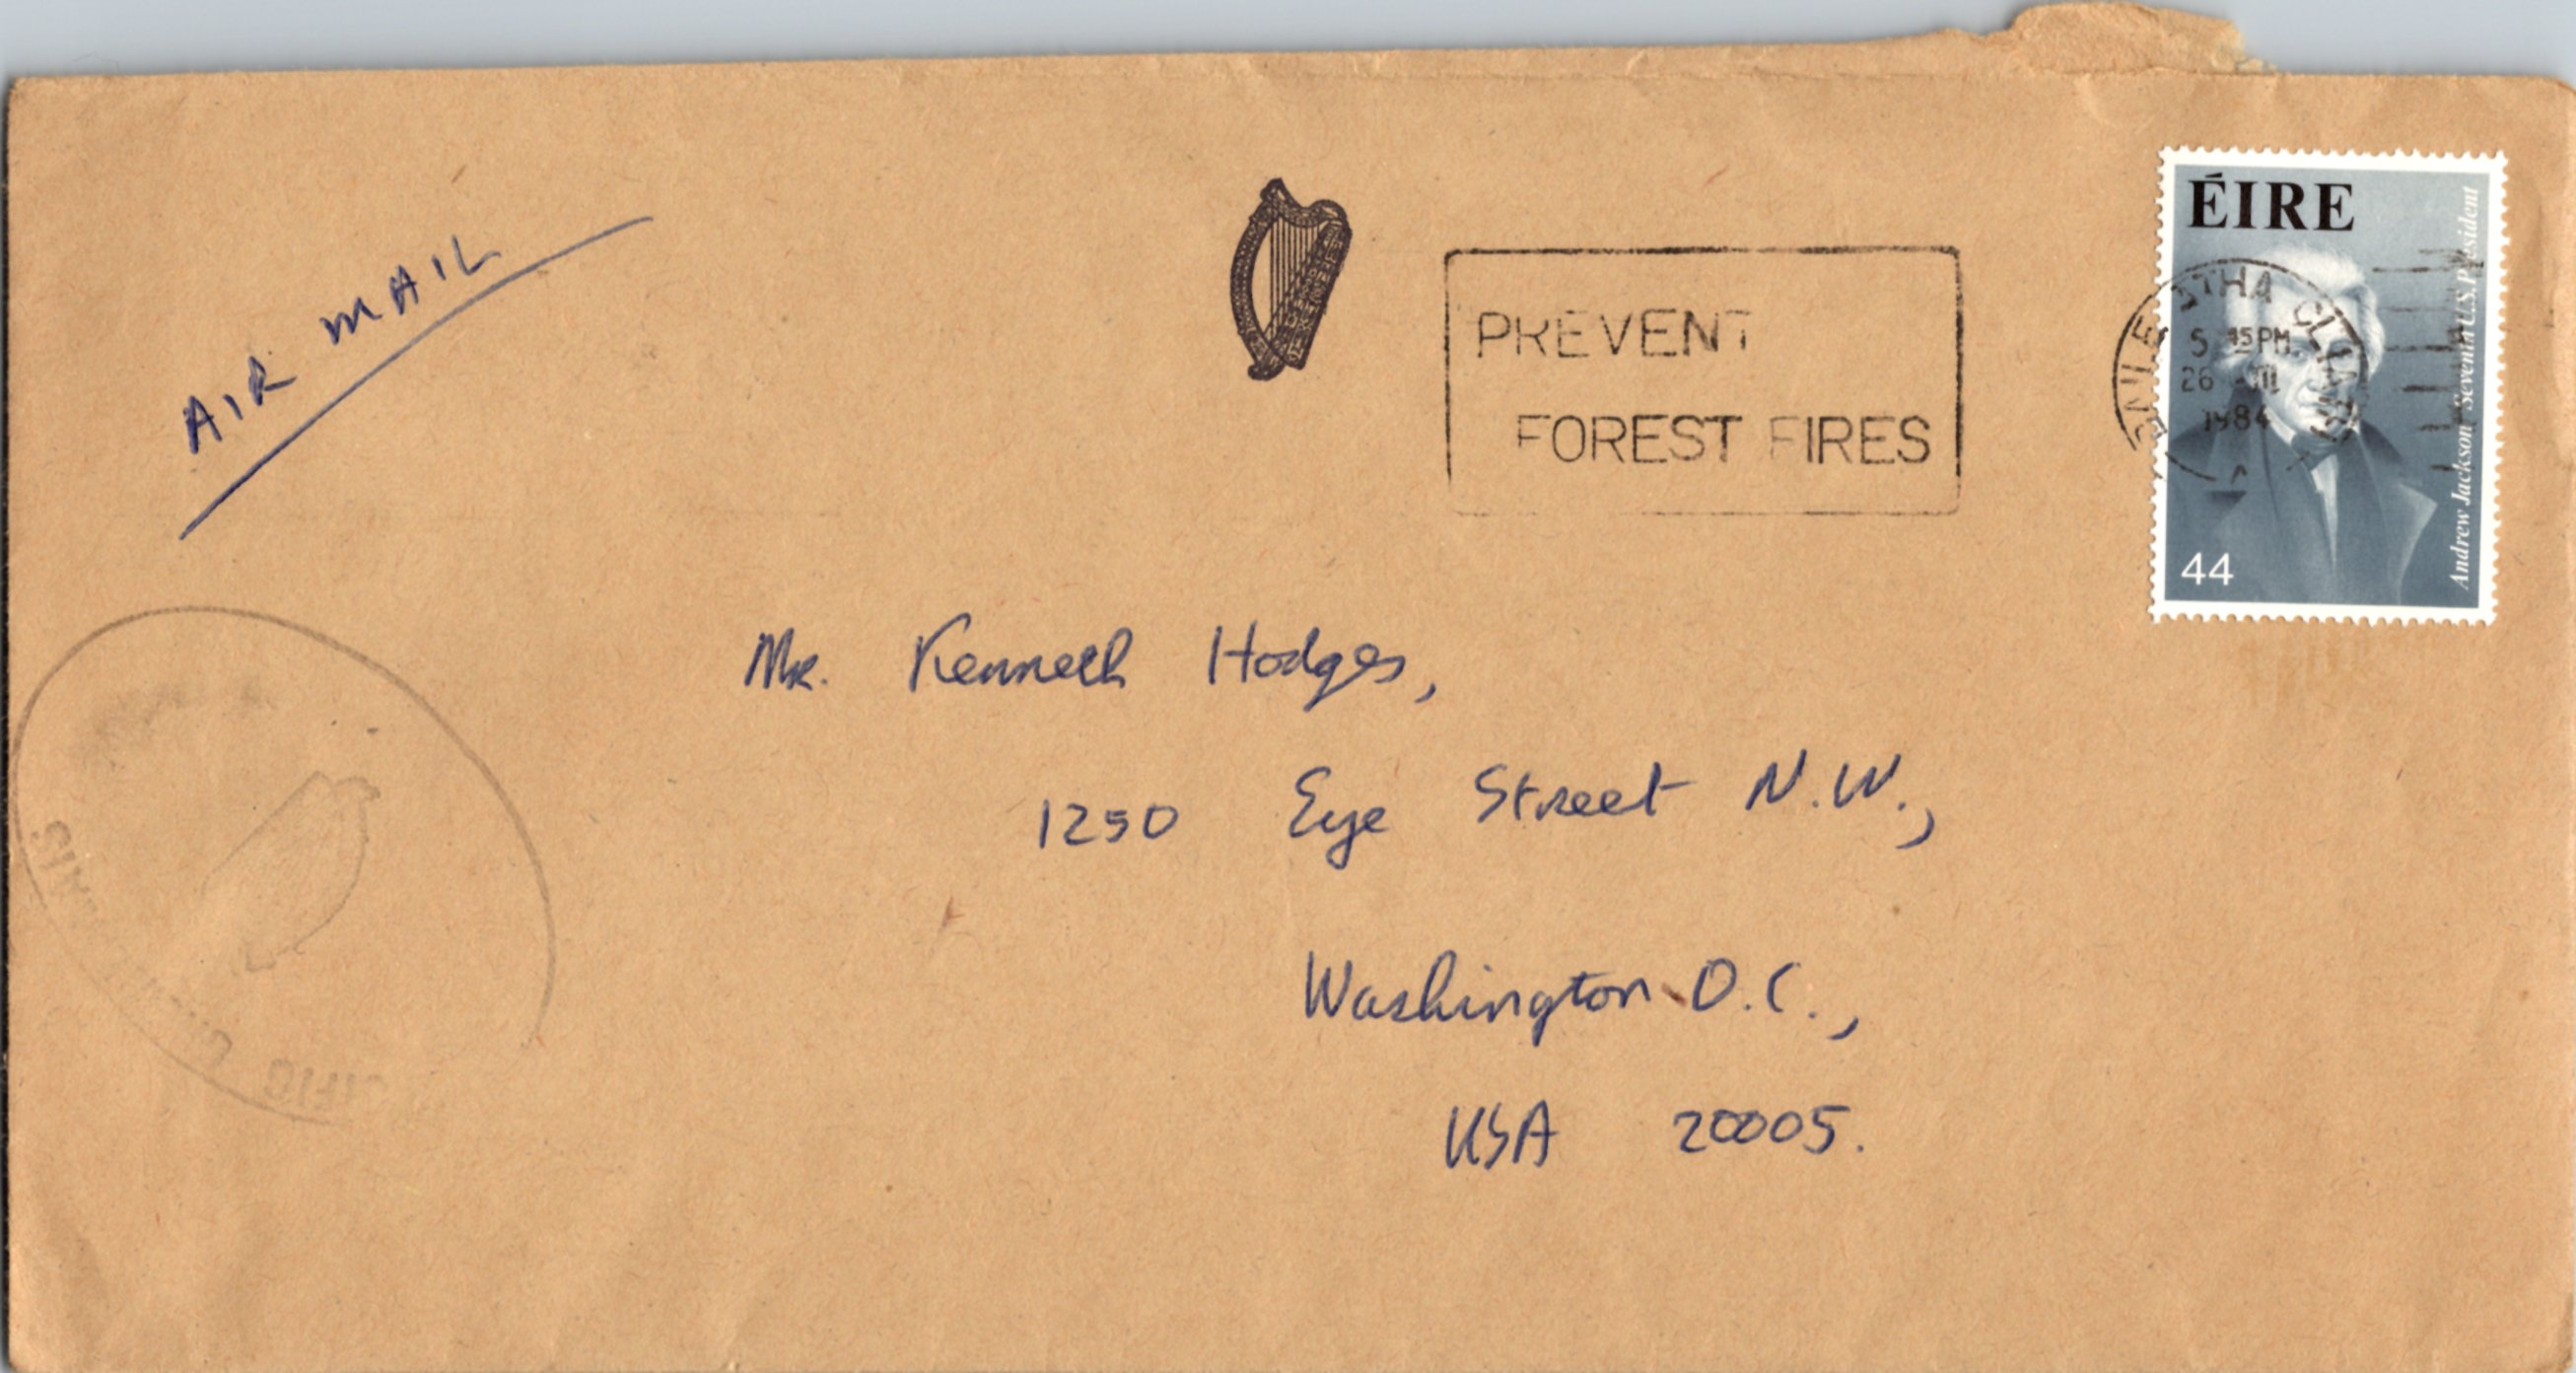 AIR MAIL
PREVENT
FOREST FIRES
ÉIRE
Andrew Jackson Seventh U.S. President
BAILE ATHA CLIATH
5 45PM
26 VII
1984
44
Mr. Kenneth Hodges,
1250 Eye Street N.W.,
Washington D.C.,
USA 20005.